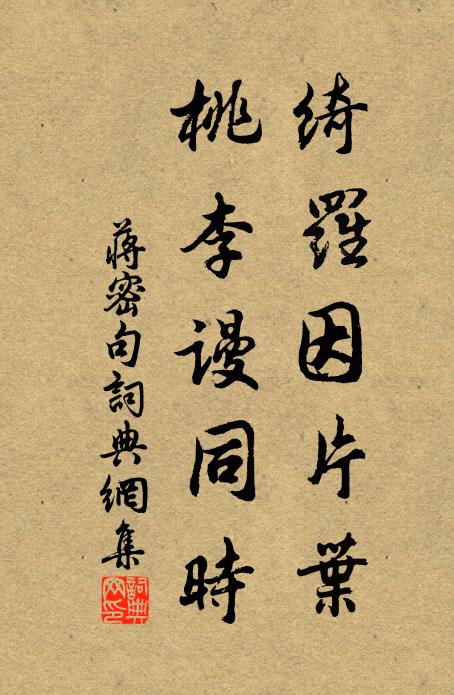 綺羅因片葉
桃李謾同時
蔣密句詞典網集
詞典
网印